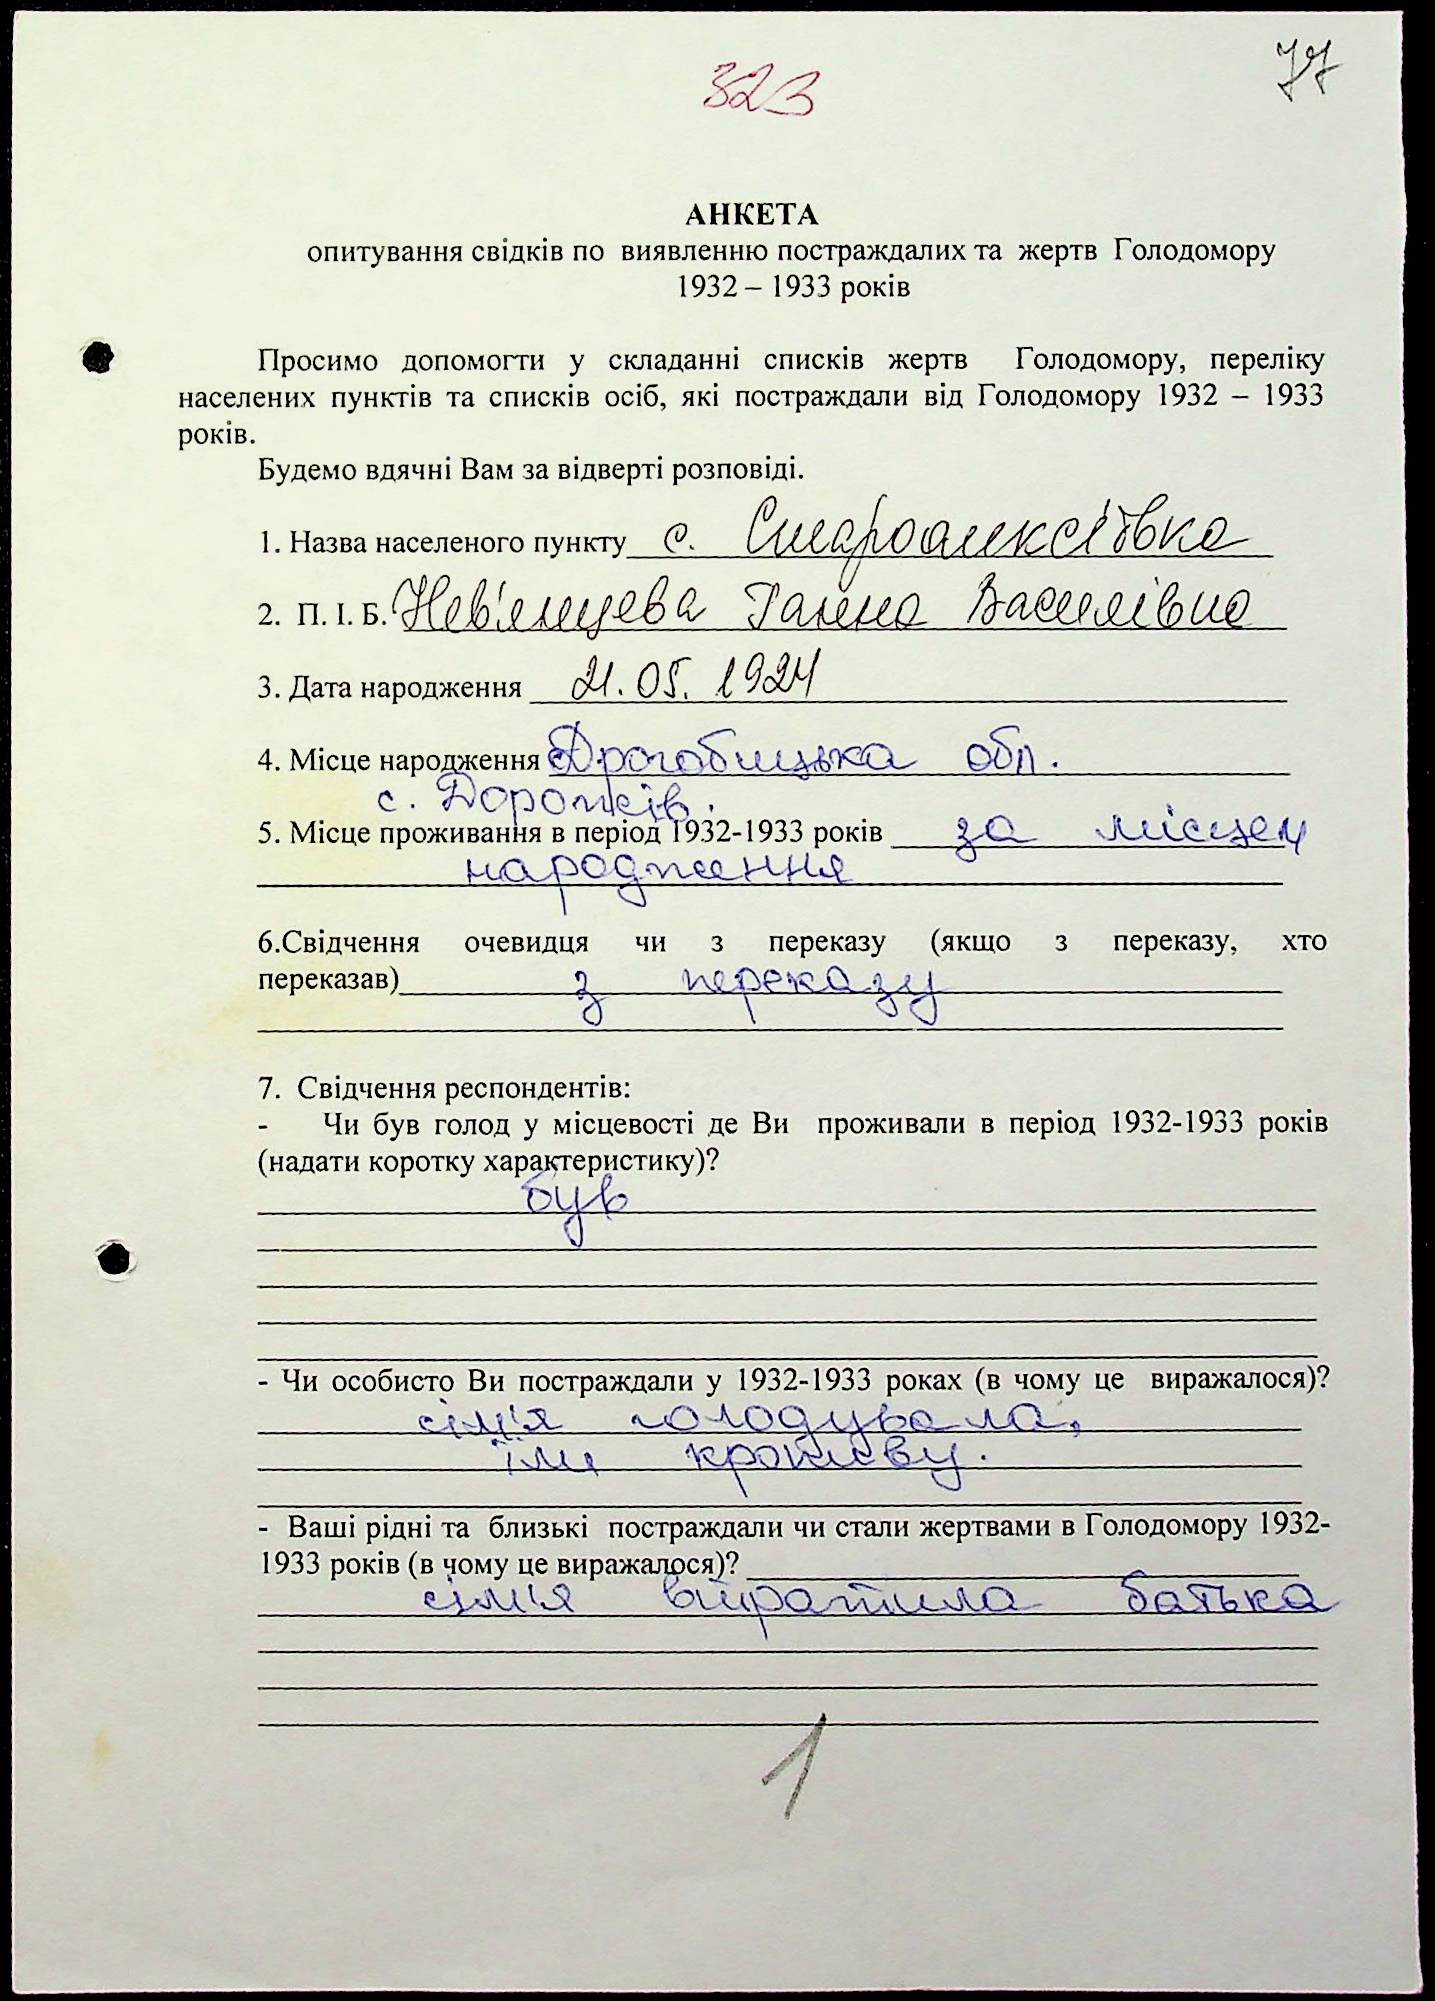 323
77
АНКЕТА
опитування свідків по виявленню постраждалих та жертв Голодомору
1932 – 1933 років
Просимо допомогти у складанні списків жертв Голодомору, переліку
населених пунктів та списків осіб, які постраждали від Голодомору 1932 – 1933
років.
Будемо вдячні Вам за відверті розповіді.
1. Назва населеного пункту с. Староолексіївка
2. П. І. Б. Нев'янцева Ганна Василівна
3. Дата народження 21.05.1924
4. Місце народження Дрогобицька обл.
с. Дорожів.
5. Місце проживання в період 1932-1933 років за місцем
народження
6.Свідчення очевидця чи з переказу (якщо з переказу, хто
переказав) з переказу
7. Свідчення респондентів:
- Чи був голод у місцевості де Ви проживали в період 1932-1933 років
(надати коротку характеристику)?
був
- Чи особисто Ви постраждали у 1932-1933 роках (в чому це виражалося)?
сім'я голодувала,
їли кропиву.
- Ваші рідні та близькі постраждали чи стали жертвами в Голодомору 1932-
1933 років (в чому це виражалося)?
сім'я втратила батька
1